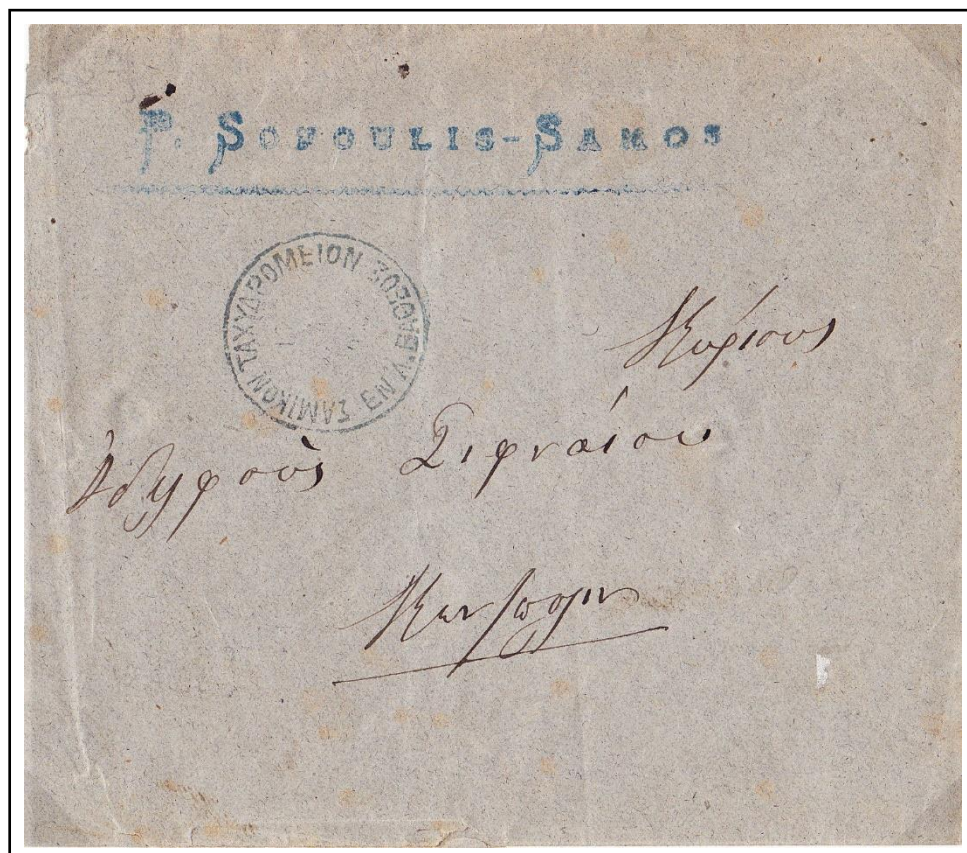 P. SOFOULIS-SAMOS
ΣΑΜΙΚΟΝ ΤΑΧΥΔΡΟΜΕΙΟΝ ΕΝ Λ. ΒΑΘΕΟΣ
Κυρίους
Ἀδελφοὺς Σιφναίου
Κων/πολιν